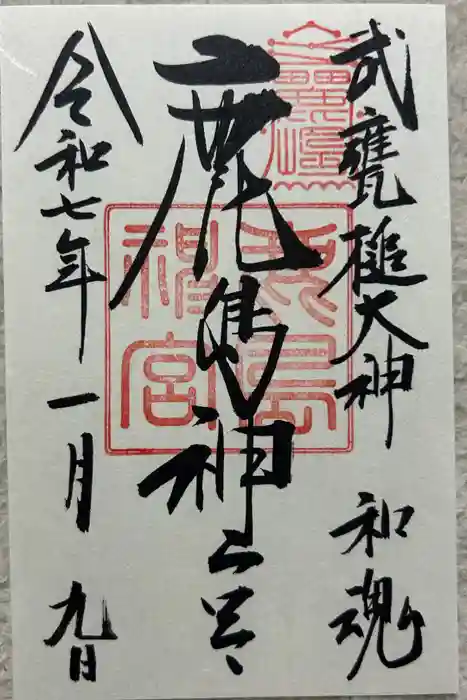 武甕槌大神 和魂
鹿島神宮
令和七年一月九日